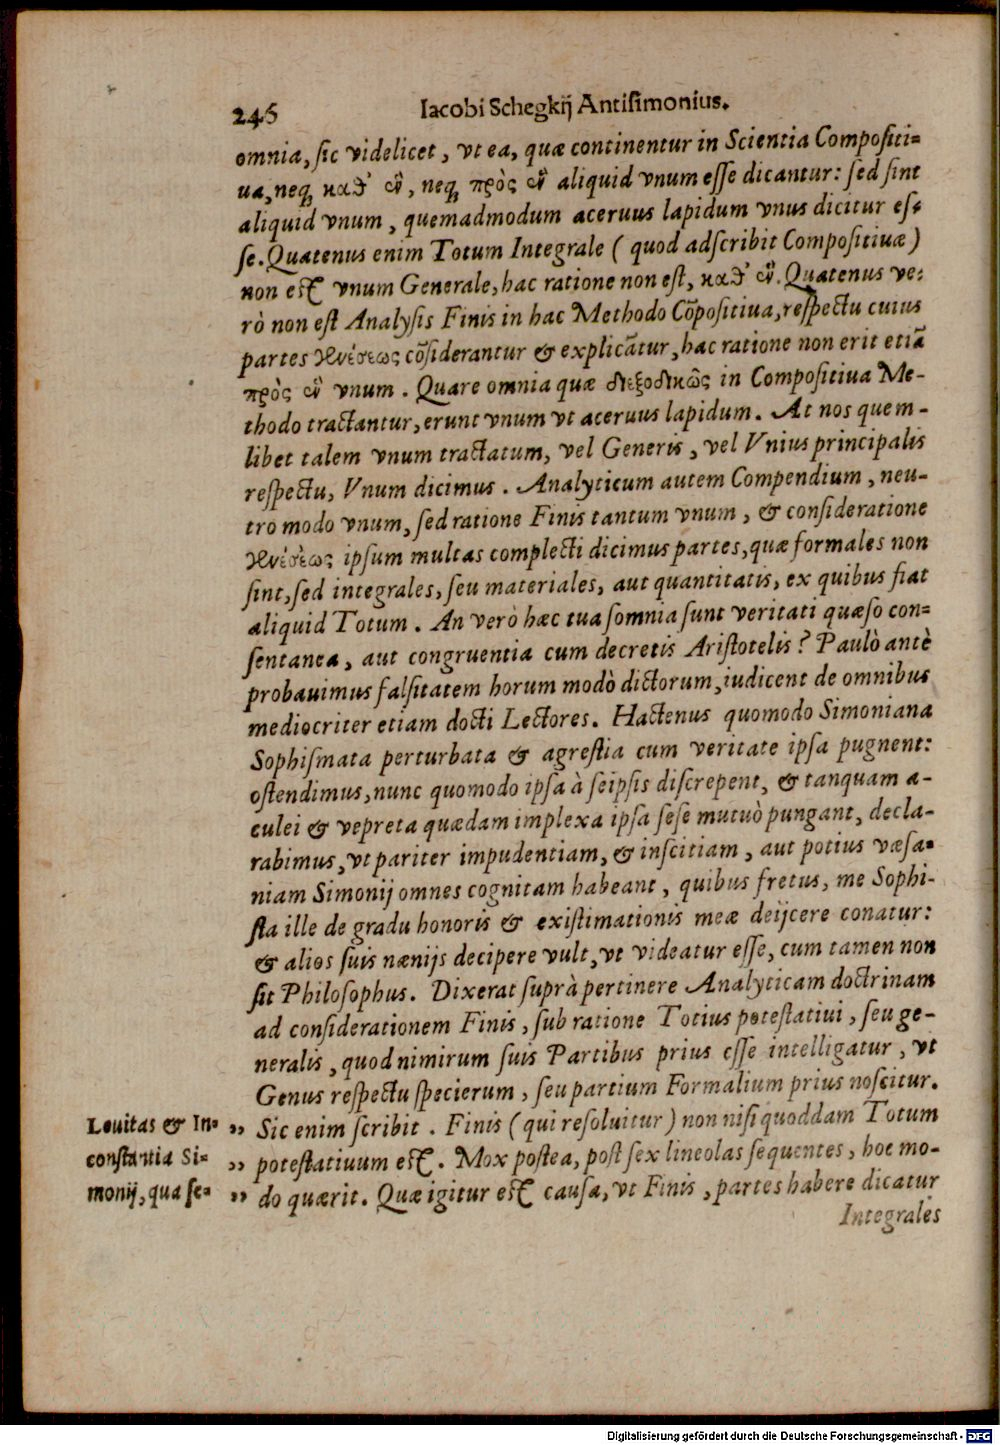 246 Iacobi Schegkij Antisimonius.
omnia, sic videlicet, vt ea, quæ continentur in Scientia Compositi=
ua, neq; καθ' ἓν, neq; πρὸς ἓν aliquid vnum esse dicantur: sed sint
aliquid vnum, quemadmodum aceruus lapidum vnus dicitur es=
se. Quatenus enim Totum Integrale (quod adscribit Compositiuæ)
non est vnum Generale, hac ratione non est, καθ' ἓν. Quatenus ve=
rò non est Analysis Finis in hac Methodo Cõpositiua, respectu cuius
partes γενέσεως cõsiderantur & explicãtur, hac ratione non erit etiã
πρὸς ἓν vnum. Quare omnia quæ διεξοδικῶς in Compositiua Me-
thodo tractantur, erunt vnum vt aceruus lapidum. At nos quem-
libet talem vnum tractatum, vel Generis, vel Vnius principalis
respectu, Vnum dicimus. Analyticum autem Compendium, neu-
tro modo vnum, sed ratione Finis tantum vnum, & consideratione
γενέσεως ipsum multas complecti dicimus partes, quæ formales non
sint, sed integrales, seu materiales, aut quantitatis, ex quibus fiat
aliquid Totum. An verò hæc tua somnia sunt veritati quæso con=
sentanea, aut congruentia cum decretis Aristotelis? Paulò antè
probauimus falsitatem horum modò dictorum, iudicent de omnibus
mediocriter etiam docti Lectores. Hactenus quomodo Simoniana
Sophismata perturbata & agrestia cum veritate ipsa pugnent:
ostendimus, nunc quomodo ipsa à seipsis discrepent, & tanquam a-
culei & vepreta quædam implexa ipsa sese mutuò pungant, decla-
rabimus, vt pariter impudentiam, & inscitiam, aut potius væsa=
niam Simonij omnes cognitam habeant, quibus fretus, me Sophi-
sta ille de gradu honoris & existimationis meæ deijcere conatur:
& alios suis nænijs decipere vult, vt videatur esse, cum tamen non
sit Philosophus. Dixerat suprà pertinere Analyticam doctrinam
ad considerationem Finis, sub ratione Totius potestatiui, seu ge-
neralis, quod nimirum suis Partibus prius esse intelligatur, vt
Genus respectu specierum, seu partium Formalium prius noscitur.
Leuitas & In= ,, Sic enim scribit. Finis (qui resoluitur) non nisi quoddam Totum
constantia Si= ,, potestatiuum est. Mox postea, post sex lineolas sequentes, hoc mo-
monij, qua se= ,, do quærit. Quæ igitur est causa, vt Finis, partes habere dicatur
Integrales
Digitalisierung gefördert durch die Deutsche Forschungsgemeinschaft - DFG